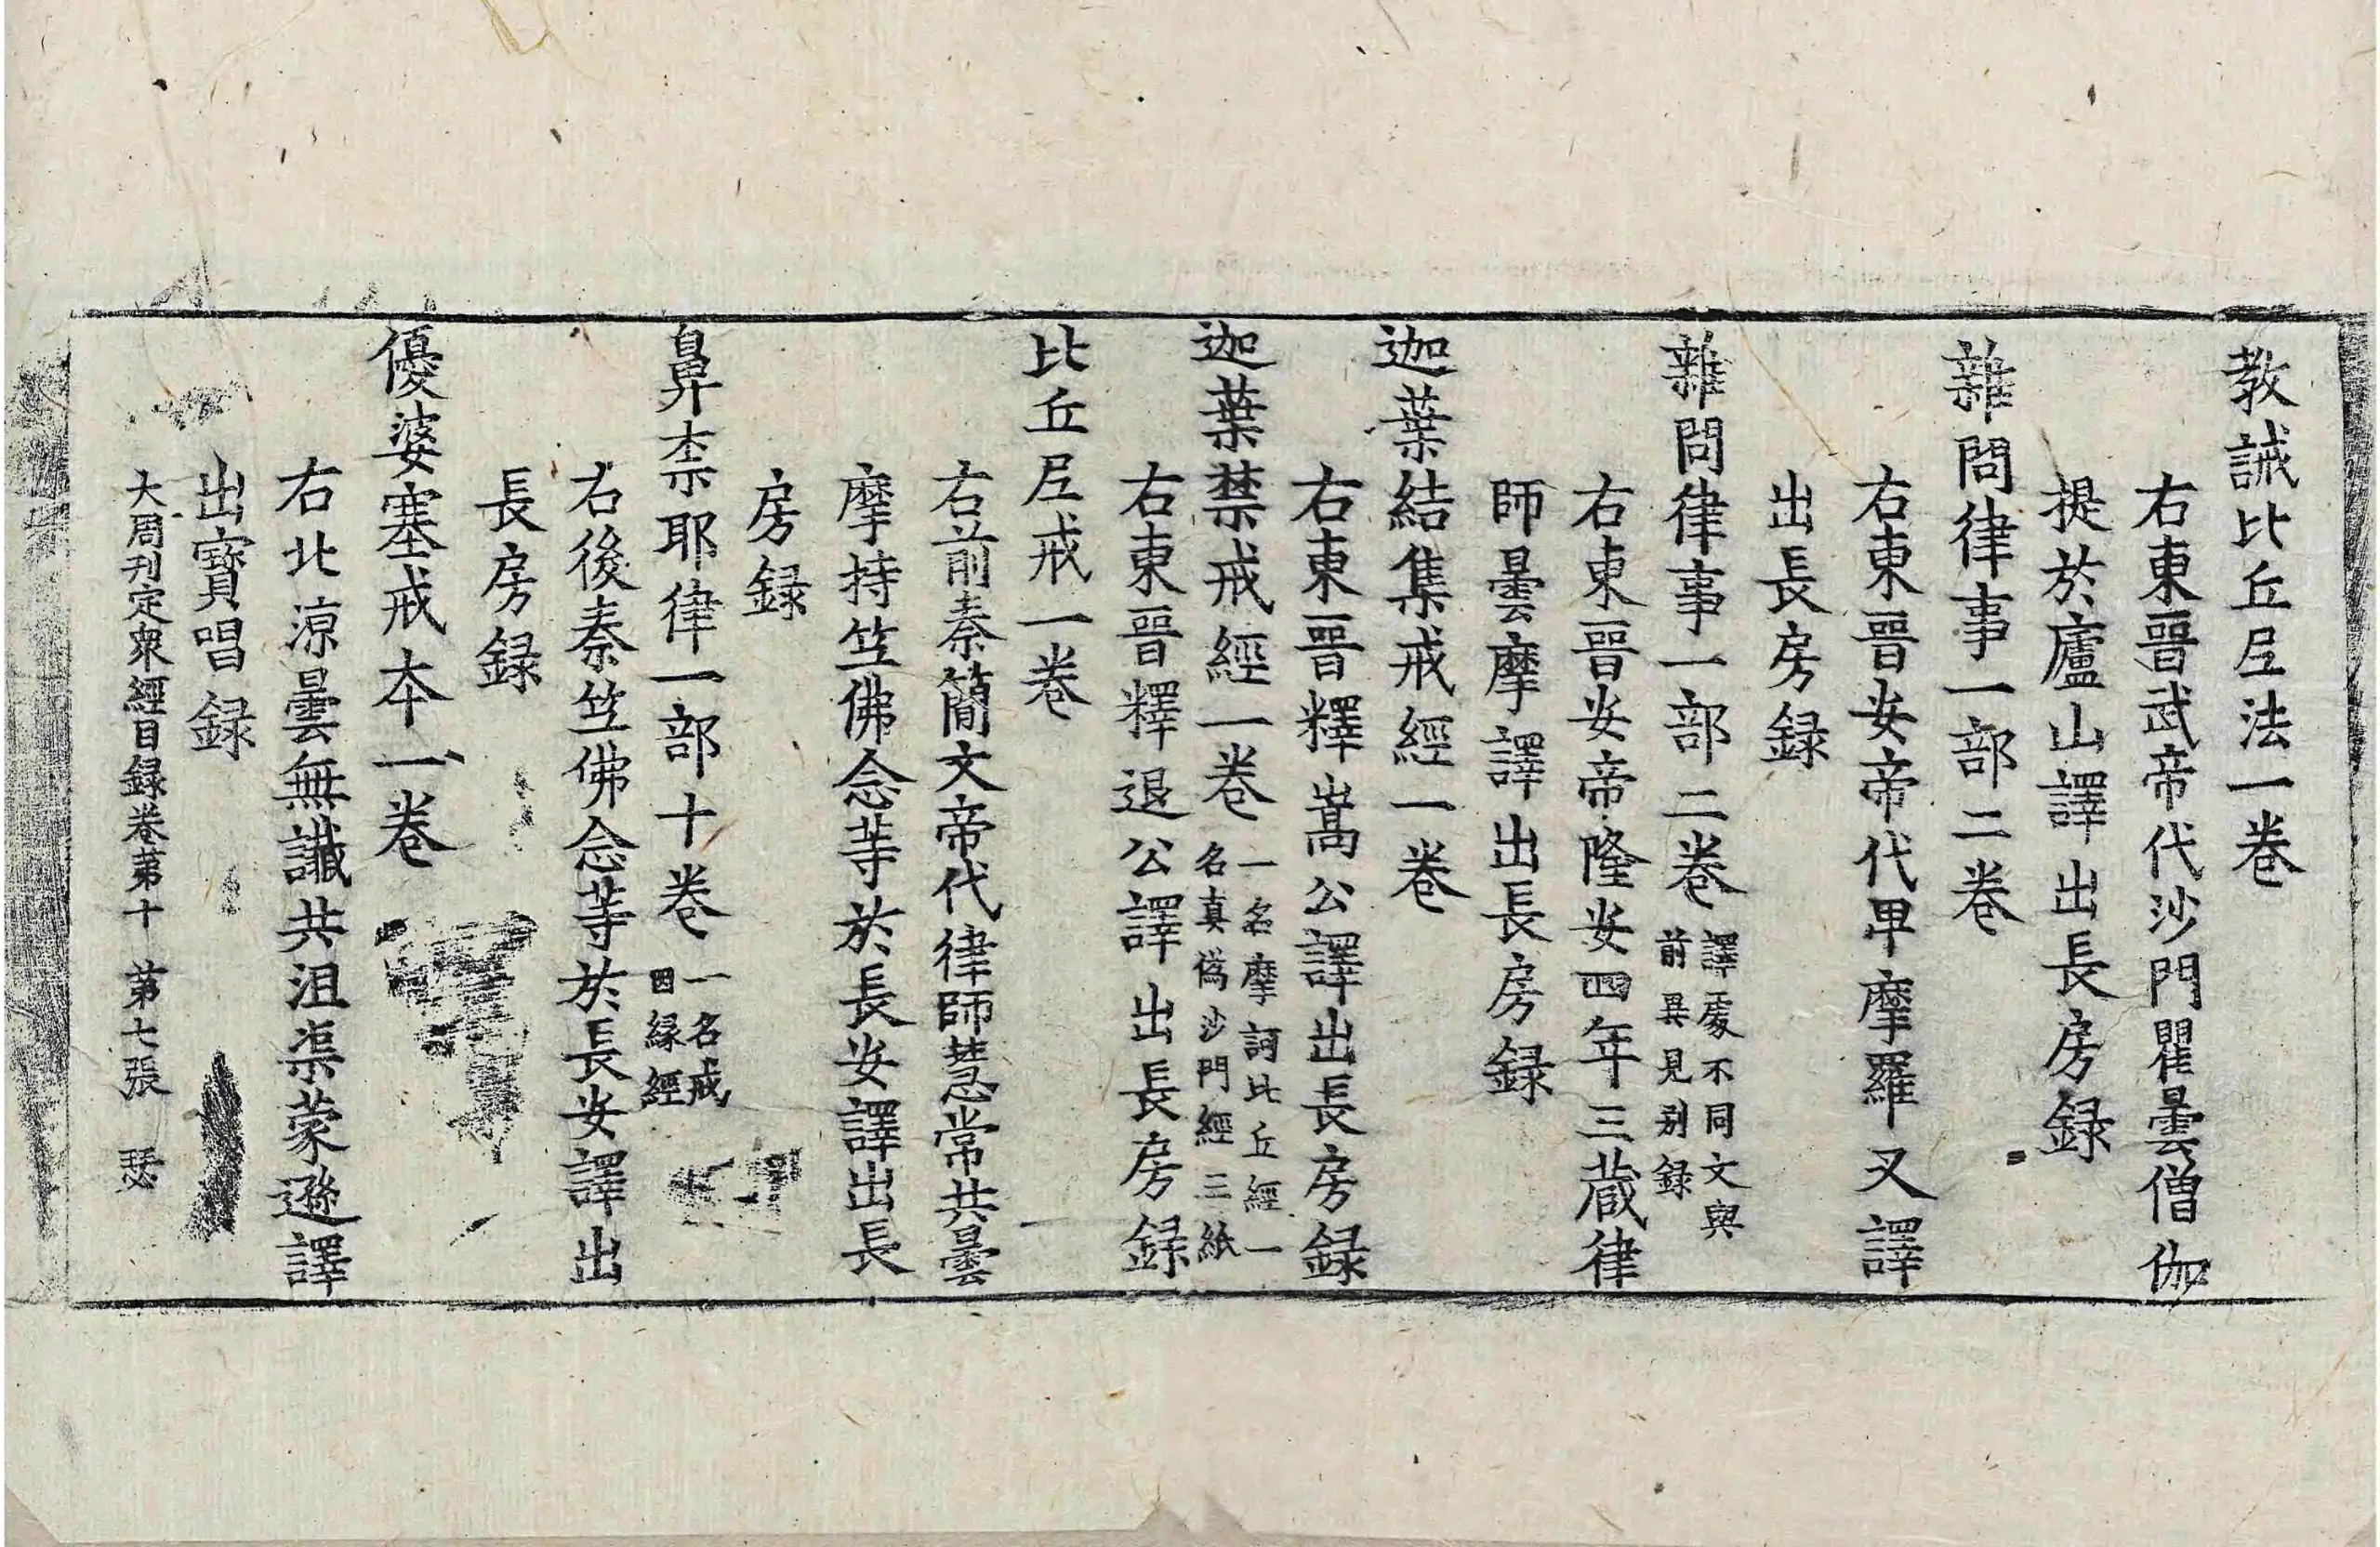 教誡比丘尼法一卷
右東晉武帝代沙門瞿曇僧伽
提於廬山譯出長房録
雜問律事一部二卷
右東晉安帝代卑摩羅叉譯
出長房録
雜問律事一部二卷
譯處不同文與
前異見别録
右東晉安帝隆安四年三藏律
師曇摩譯出長房録
迦葉結集戒經一卷
右東晉釋嵩公譯出長房録
迦葉禁戒經一卷
一名摩訶比丘經一
名真僞沙門經三紙
右東晉釋退公譯出長房録
比丘尼戒一卷
右前秦簡文帝代律師慧常共曇
摩持竺佛念等於長安譯出長
房録
鼻柰耶律一部十卷
一名戒
因縁經
右後秦竺佛念等於長安譯出
長房録
優婆塞戒本一卷
右北涼曇無讖共沮渠蒙遜譯
出寶唱録
大周刊定衆經目録卷第十 第七張 瑟